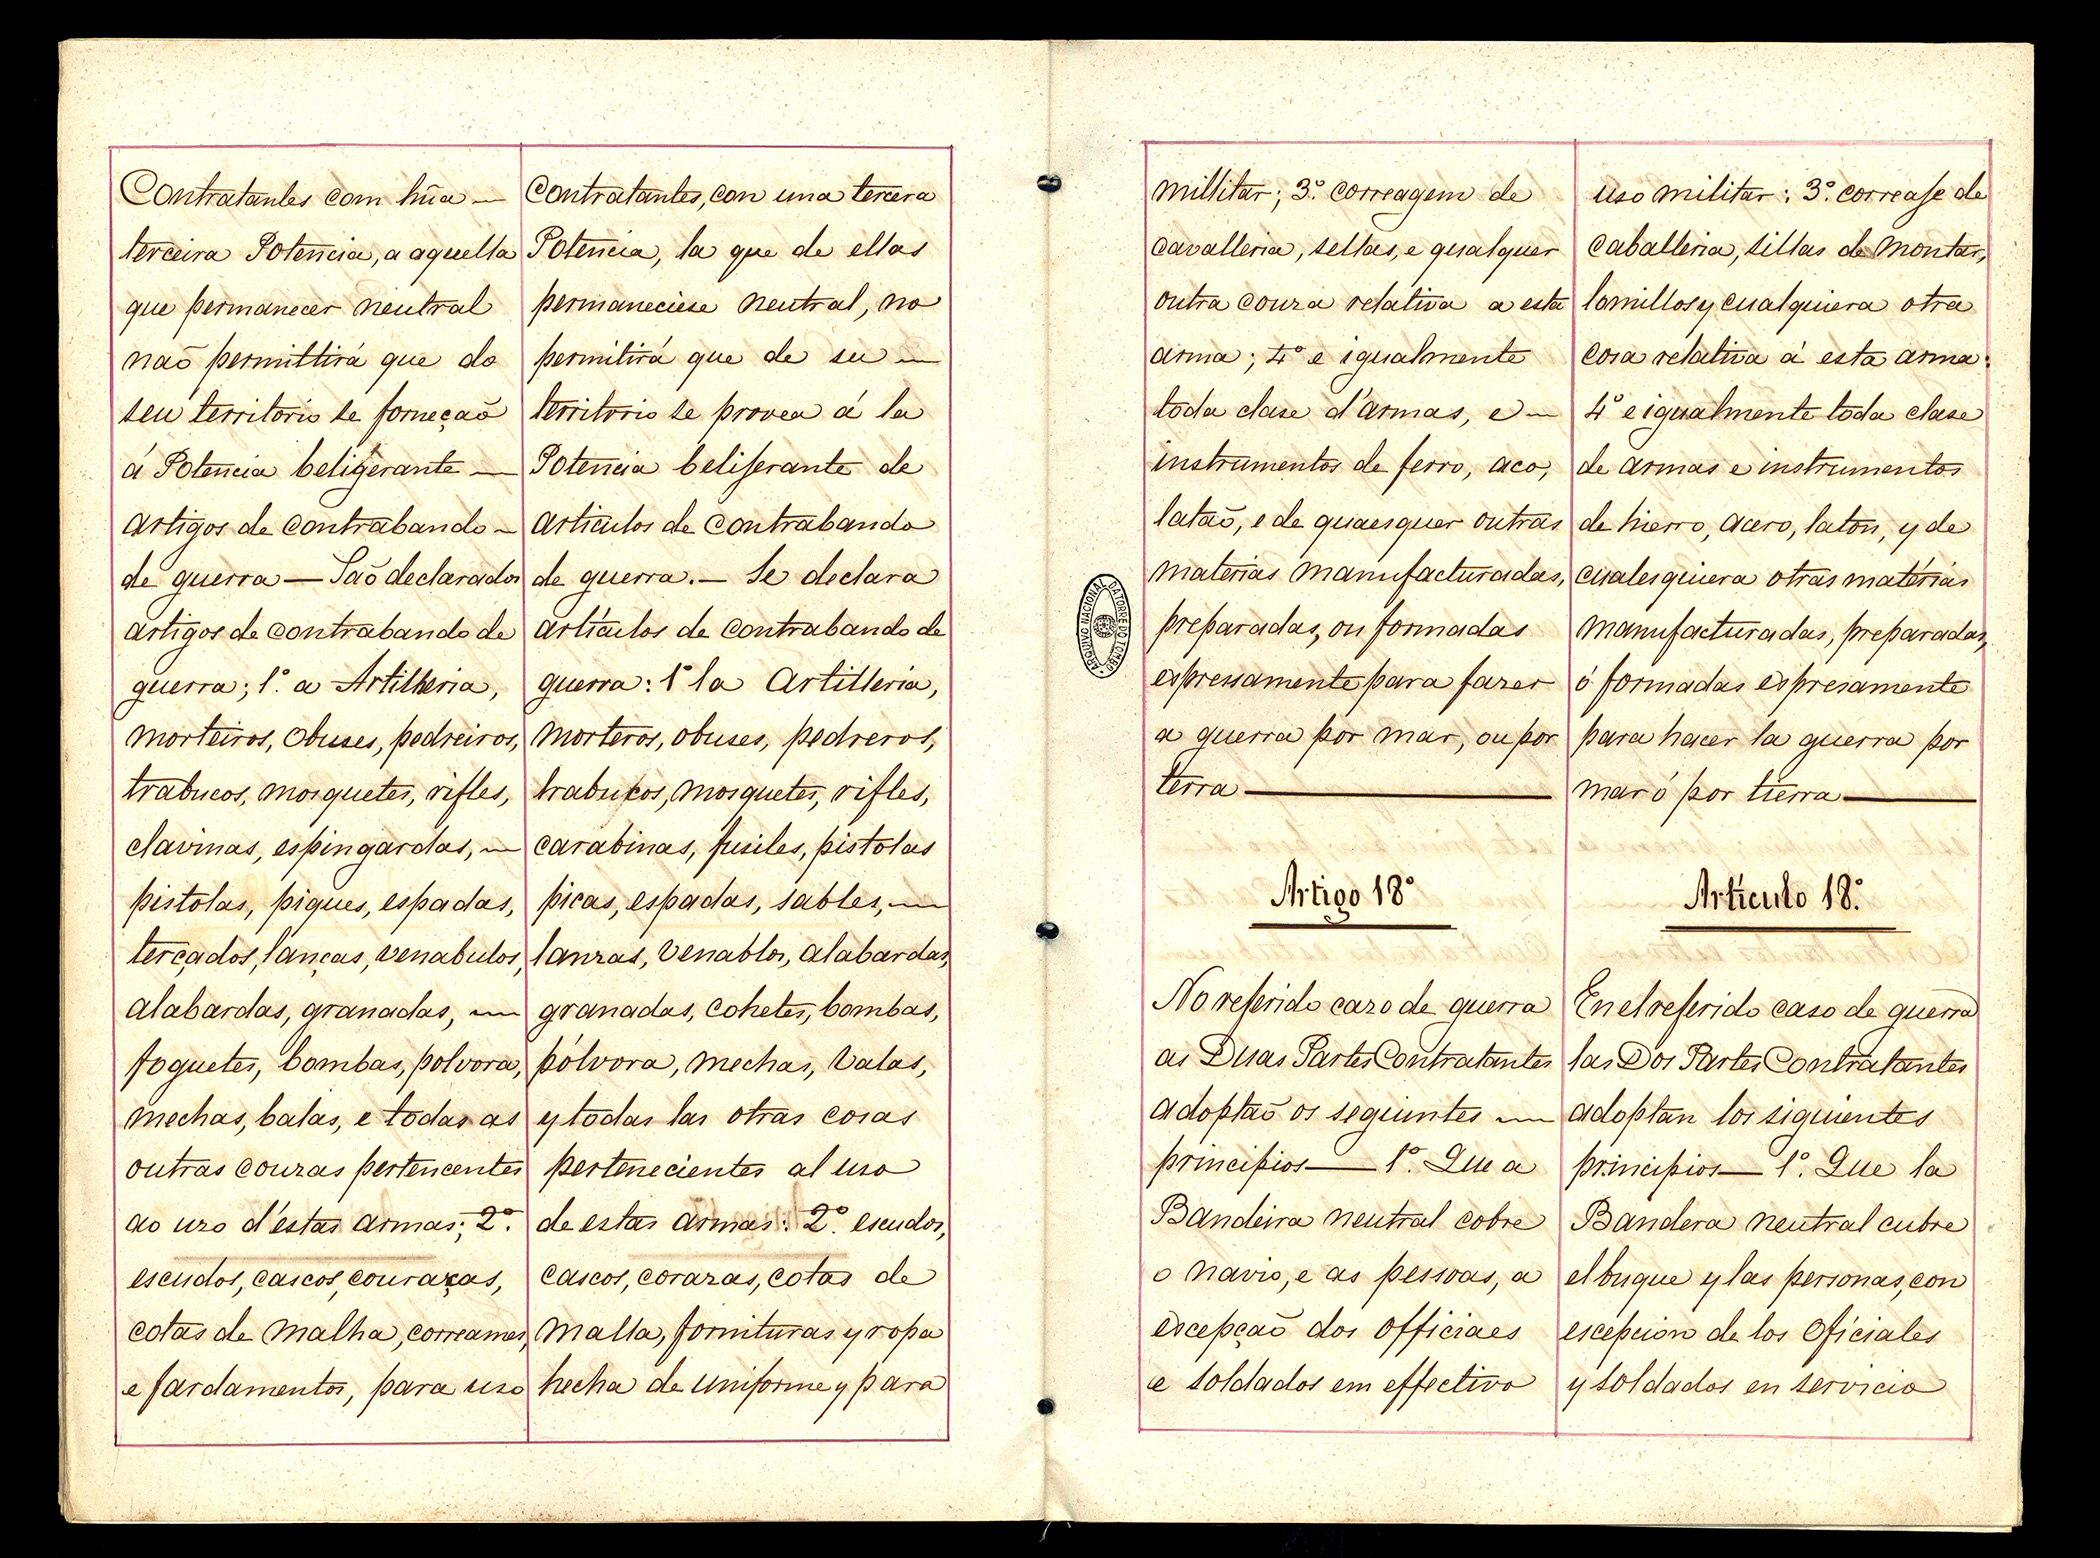 Contratantes com hũa —
terceira Potencia, a aquella
que permanecer neutral
naõ permittirá que do
seu territorio se forneçaõ
á Potencia beligerante —
artigos de contrabando —
de guerra — Saõ declarados
artigos de contrabando de
guerra; 1.º a Artilheria,
morteiros, obuses, pedreiros,
trabucos, mosquetes, rifles,
clavinas, espingardas, —
pistolas, piques, espadas,
terçados, lanças, venabulos,
alabardas, granadas, —
foguetes, bombas, polvora,
mechas, balas, e todas as
outras couzas pertencentes
ao uzo d'estas armas; 2.º
escudos, cascos, couraças,
cotas de malha, correames,
e fardamentos, para uso
Contratantes, con una tercera
Potencia, la que de ellas
permaneciese neutral, no
permitirá que de su —
territorio se provea á la
Potencia beligerante de
articulos de contrabando
de guerra. — Se declara
artículos de contrabando de
guerra: 1º la Artilleria,
morteros, obuses, pedreros,
trabucos, mosquetes, rifles,
carabinas, fusiles, pistolas
picas, espadas, sables, —
lanzas, venablos, alabardas,
granadas, cohetes, bombas,
pólvora, mechas, balas,
y todas las otras cosas
pertenecientes al uso
de estas armas: 2.º escudos,
cascos, corazas, cotas de
malla, fornituras y ropa
hecha de uniforme y para
millitar; 3.º correagem de
cavalleria, sellas, e qualquer
outra couza relativa a esta
arma; 4º e igualmente
toda clase d'armas, e —
instrumentos de ferro, aco,
lataõ, e de quaesquer outras
materias manufacturadas,
preparadas, ou formadas
expressamente para fazer
a guerra por mar, ou por
terra —
Artigo 18º
No referido cazo de guerra
as Duas Partes Contratantes
adoptaõ os seguintes —
principios — 1.º Que a
Bandeira neutral cobre
o navio, e as pessoas, a
excepçaõ dos officiaes
e soldados em effectivo
uso militar: 3.º correage de
caballeria, sillas de montar,
lomillos y cualquiera otra
cosa relativa á esta arma:
4º e igualmente toda clase
de armas e instrumentos
de hierro, acero, laton, y de
cualesquiera otras matérias
manufacturadas, preparadas,
ó formadas espresamente
para hacer la guerra por
mar ó por tierra —
Artículo 18.º
En el referido caso de guerra
las Dos Partes Contratantes
adoptan los siguientes
principios — 1.º Que la
Bandera neutral cubre
el buque y las personas, con
escepcion de los Oficiales
y soldados en servicio
ARQUIVO NACIONAL DA TORRE DO TOMBO